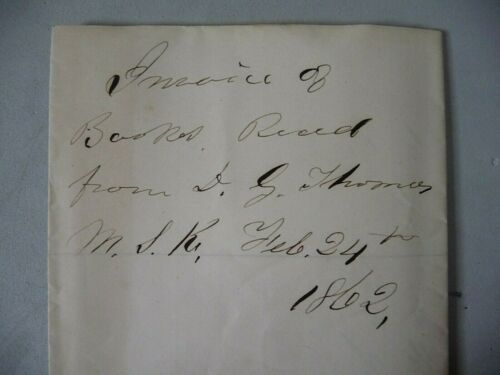 Invoice of
Books Recd
from D. G. Thomas
M. S. K., Feb. 24th
1862,